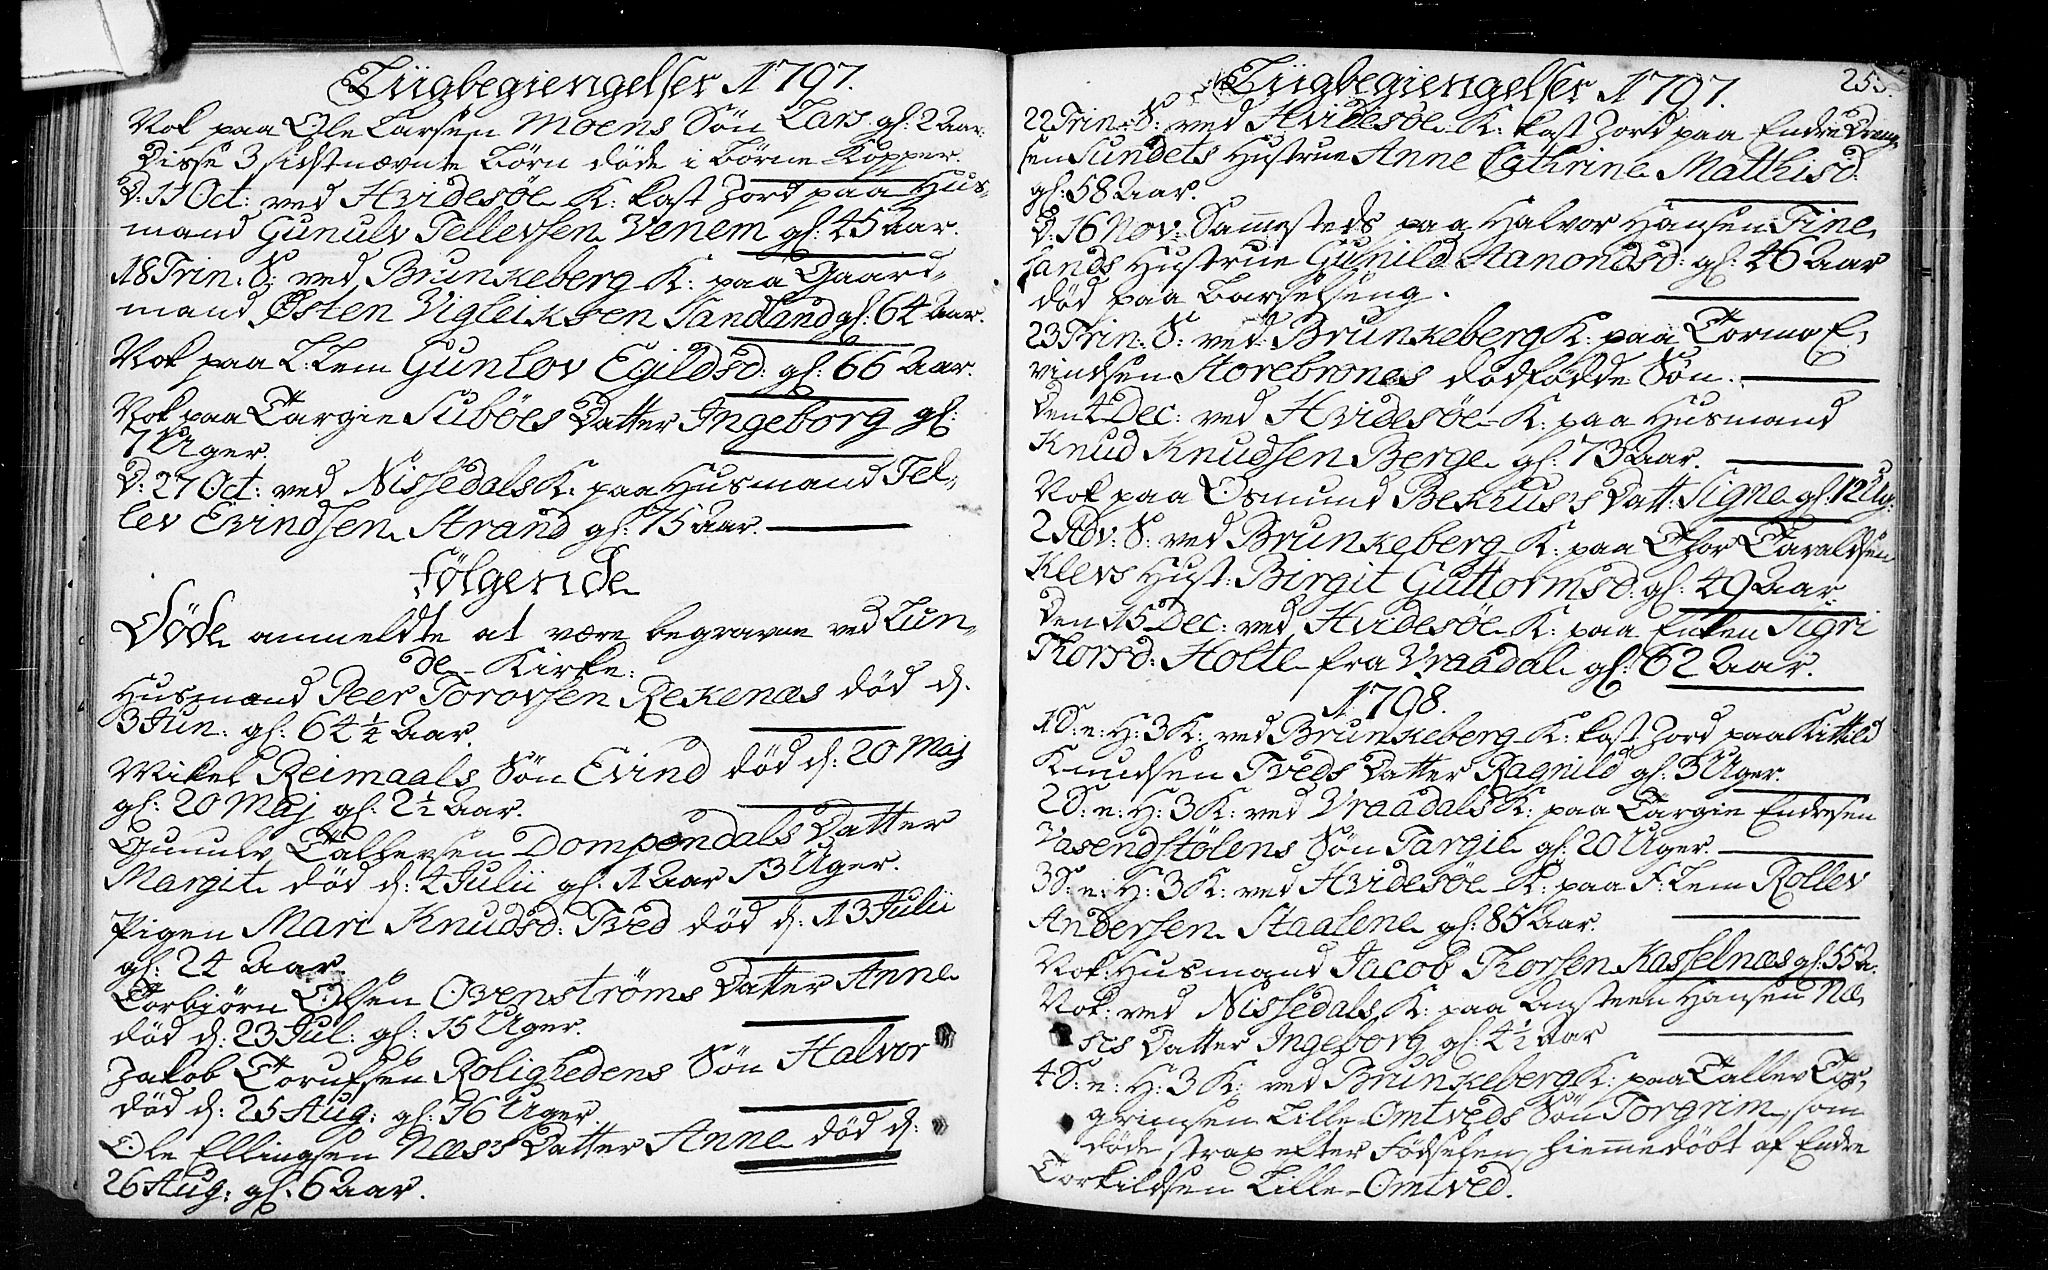 Liigbegiengelser 1797.
Nok paa Ole Larsen Moens Søn Lars gl: 2 Aar.
Disse 3 sidstnævnte Børn døde i Børne-Kopper.
D: 11 Oct: ved Hvidesøe K: kast Jord paa Hus-
mand Gunulv Tellevsen Venem gl: 45 Aar.
18 Trin: S: ved Brunkeberg K: paa Gaard-
mand Østen Vigleiksen Sandland gl: 64 Aar.
Nok paa L: Lem Gunlov Egildsd: gl: 66 Aar.
Nok paa Targie Subøes Datter Ingeborg gl:
7 Uger.
D: 27 Oct: ved Nissedals K: paa Husmand Tel-
lev Evindsen Strand gl: 75 Aar.
Følgende
Døde anmeldte at være begravne ved Lun-
de-Kirke:
Husmand Peer Torovsen Rekenæs død d.
3 Jun: gl: 64 1/2 Aar.
Mikel Reimaals Søn Evind død d: 20 Maj
gl: 20 Maj gl: 2 1/2 Aar.
Gunulv Tallevsen Dompendals Datter
Margit død d: 4 Julii gl: 1 Aar 13 Uger.
Pigen Mari Knudsd: Tved død d: 13 Julii
gl: 24 Aar.
Torbiørn Olsen Ovenstrøms Datter Anne
død d: 23 Jul: gl: 15 Uger.
Jakob Torufsen Rolighedens Søn Halvor
død d: 25 Aug: gl: 16 Uger.
Ole Ellingsen Næss Datter Anne død d:
26 Aug: gl: 6 Aar.
Liigbegiengelser 1797.
255.
22 Trin: S: ved Hvidesøe K: kast Jord paa Endre
sen Sundets Hustrue Anne Cathrine Matthisd:
gl: 58 Aar.
D: 16 Nov: Sammesteds paa Halvor Hansen Fine-
lands Hustrue Gunild Aanondsd: gl: 46 Aar
død paa Barselseng.
23 Trin: S: ved Brunkeberg K: paa Tormo E-
vindsen Storebrones dødfødde Søn.
Den 4 Dec: ved Hvidesøe K: paa Husmand
Knud Knudsen Berge gl: 73 Aar.
Nok paa Osmund Bekhuss Datt: Signe gl: 12 Ug:
2 Adv: S: ved Brunkeberg K: paa Thor Taraldsen
Klevs Hust: Birgit Guttormsd: gl: 49 Aar.
Den 15 Dec: ved Hvidesøe K: paa Enken Sigri
Thorsd: Holte fra Vraadal gl: 62 Aar.
1798.
1 S: e: H: 3 K: ved Brunkeberg K: kast Jord paa Kittild
Knudsen Tveds Datter Ragnild gl: 3 Uger.
2 S: e: H: 3 K: ved Vraadals K: paa Targie Endresen
Vasendstølens Søn Targie gl: 20 Uger.
3 S: e: H: 3 K: ved Hvidesøe K: paa F: Lem Rollev
Andersen Staalene gl: 85 Aar.
Nok: Husmand Jacob Thorsen Kasselnæs gl: 55 A:
Nok: ved Nissedals K: paa Ansteen Hansen Næ-
ses Datter Ingeborg gl: 4 1/2 Aar
4 S: e: H: 3 K: ved Brunkeberg K: paa Tallev Tor-
grimsen Lille-Omtveds Søn Torgrim, som
døde strax efter Fødselen, hiemmedøbt af Endre
Torkildsen Lille-Omtved.